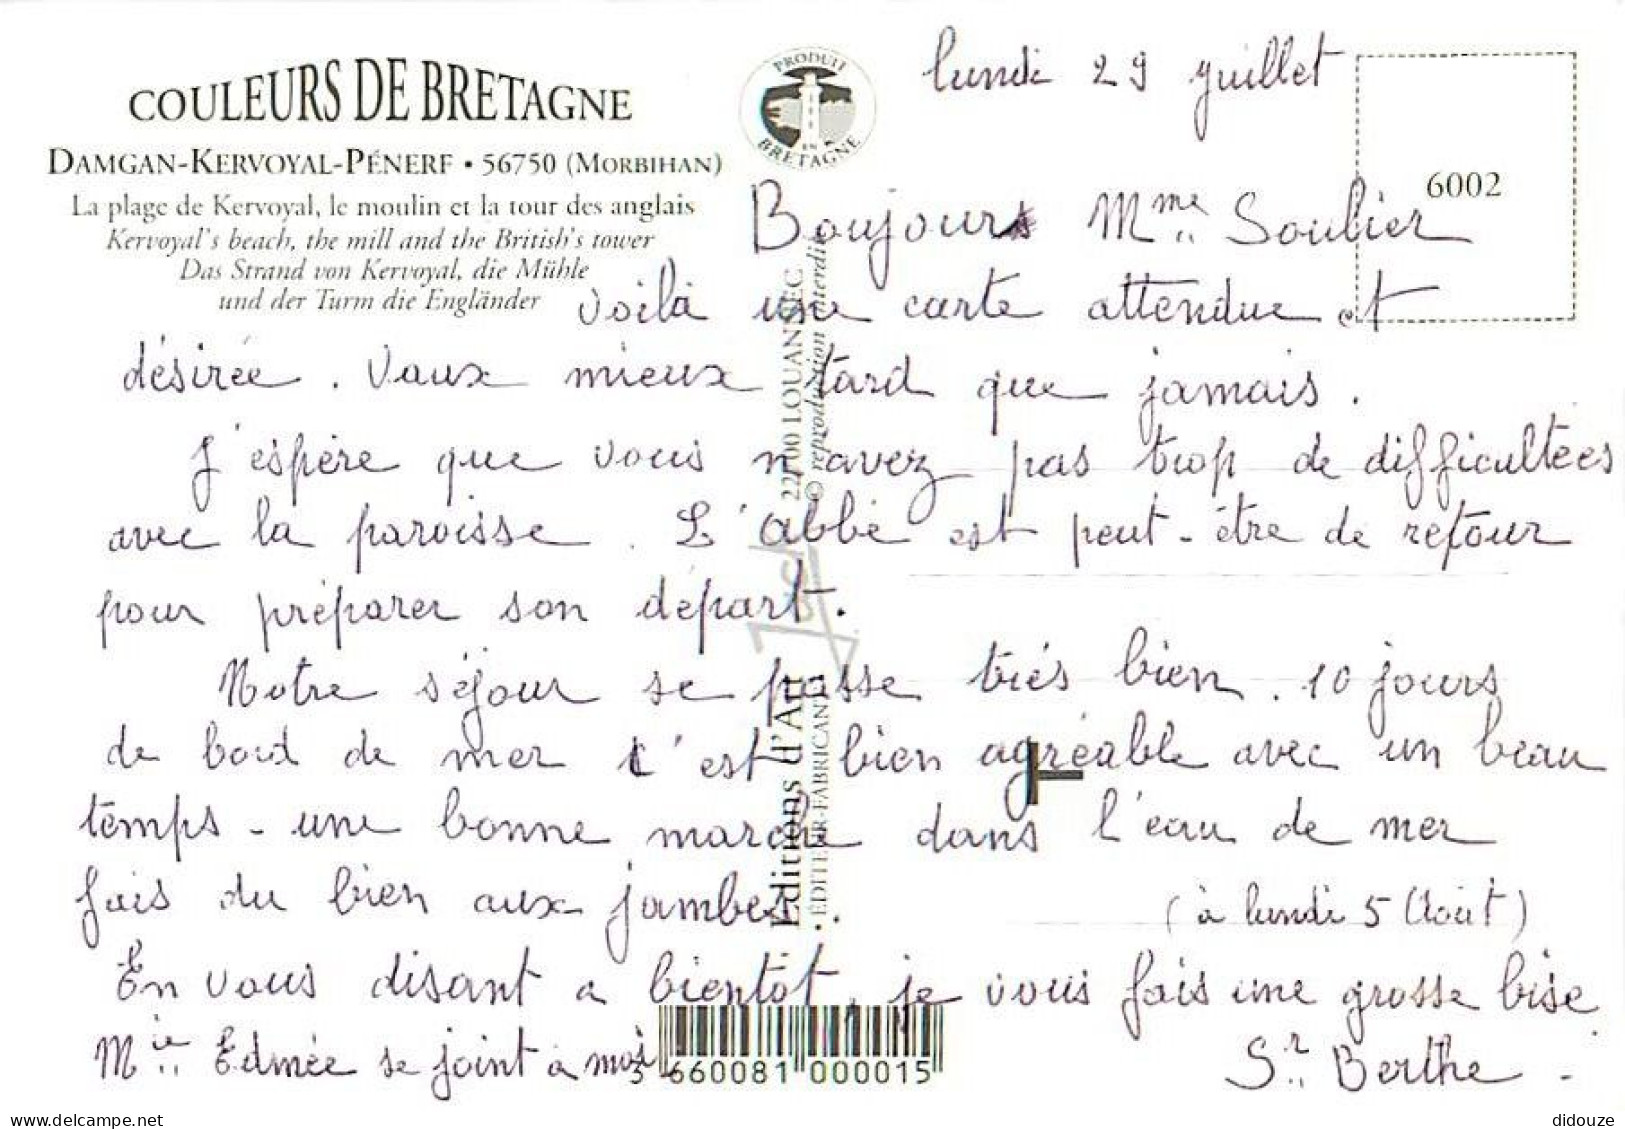 COULEURS DE BRETAGNE
DAMGAN-KERVOYAL-PÉNERF • 56750 (MORBIHAN)
La plage de Kervoyal, le moulin et la tour des anglais
Kervoyal's beach, the mill and the British's tower
Das Strand von Kervoyal, die Mühle
und der Turm die Engländer
PRODUIT
EN
BRETAGNE
6002
lundi 29 juillet
Bonjour Mme Soulier
Voilà une carte attendue et
désirée. Vaux mieux tard que jamais.
J'espère que vous n'avez pas trop de difficultées
avec la paroisse. L'abbé est peut-être de retour
pour préparer son départ.
Notre séjour se passe très bien. 10 jours
de bord de mer c'est bien agréable avec un beau
temps - une bonne marche dans l'eau de mer
fais du bien aux jambes.
(à lundi 5 Août)
En vous disant a bientot, je vous fais une grosse bise
Mie Edmée se joint à moi
Sr Berthe -
Editions d'Art
Jack
22700 LOUANNEC
• ÉDITEUR-FABRICANT
© reproduction interdite
3 660081 000015
www.delcampe.net
didouze